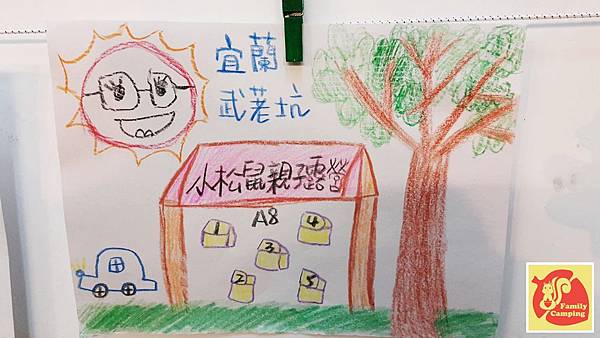 宜蘭
武荖坑
小松鼠親子露營
A8
1
4
3
2
5
Family
Camping